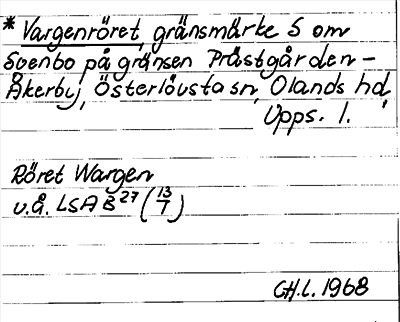 * Vargenröret, gränsmärke S om
Svenbo på gränsen Prästgården -
Åkerby, Österlövsta sn, Olands hd,
Upps. l.
Röret Wargen
u.å. LSA B 27 (13/1)
CH.L. 1968